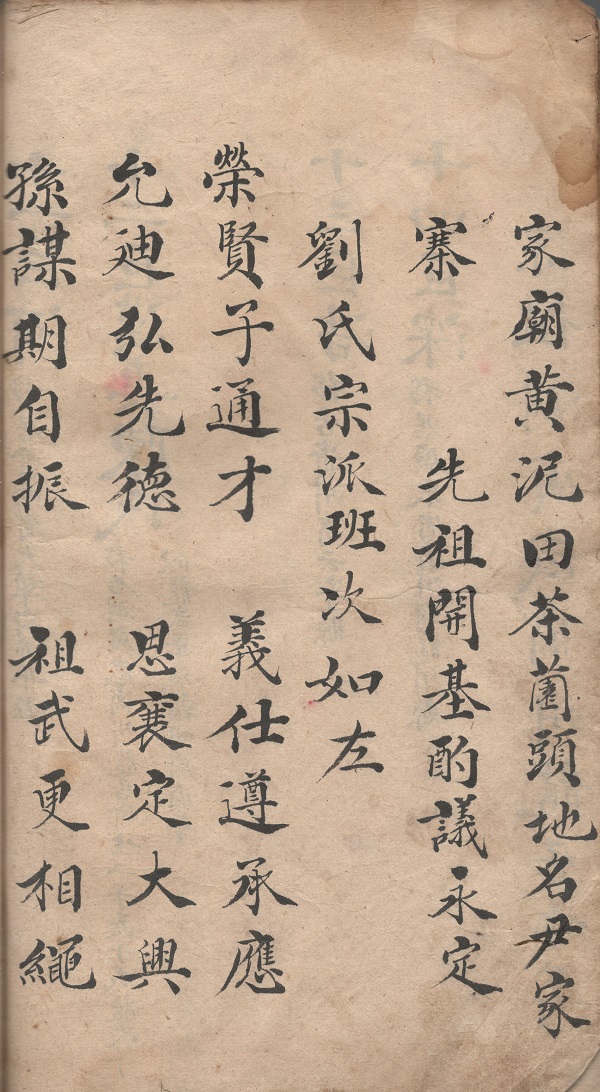 家廟黃泥田茶薗頭地名尹家
寨 先祖開基酌議永定
劉氏宗派班次如左
榮賢子通才 義仕遵承應
允迪弘先德 思襄定大興
孫謀期自振 祖武更相繩